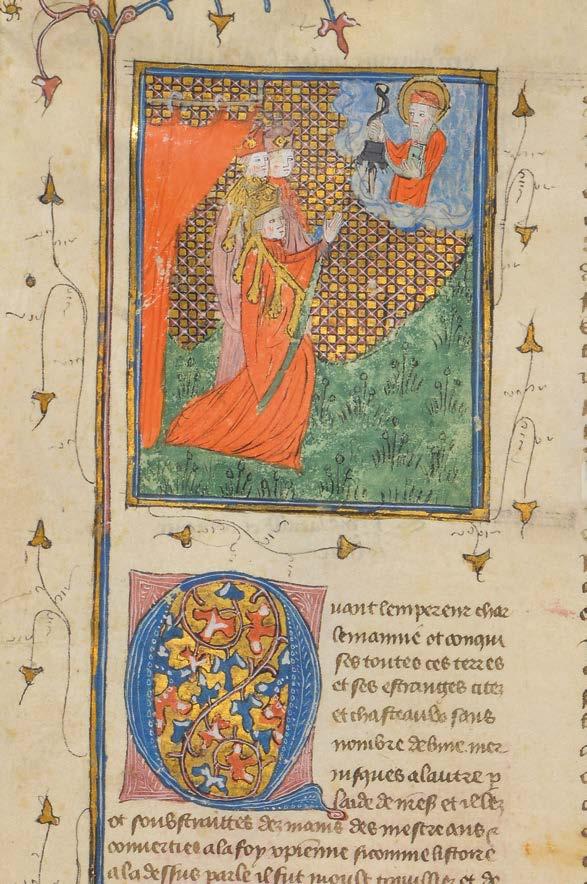 Quant lempereur char
lemanne ot conqui
ses toutes ces terres
et ses estranges citez
et chasteaulx sans
nombre de lune mer
iusques a lautre p
laide de nẽs et illec
ot soubstraittes des mains des mescreans
conuerties a la foy xpienne si comme listoire
a la dessus parle il fut moult trauillie et de